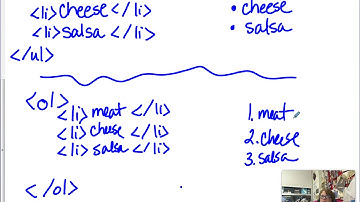 <li>cheese </li> • cheese
<li>salsa </li> • salsa
</ul>
<ol>
<li> meat </li> 1. meat
<li> cheese </li> 2. cheese
<li> salsa </li> 3. salsa
</ol>